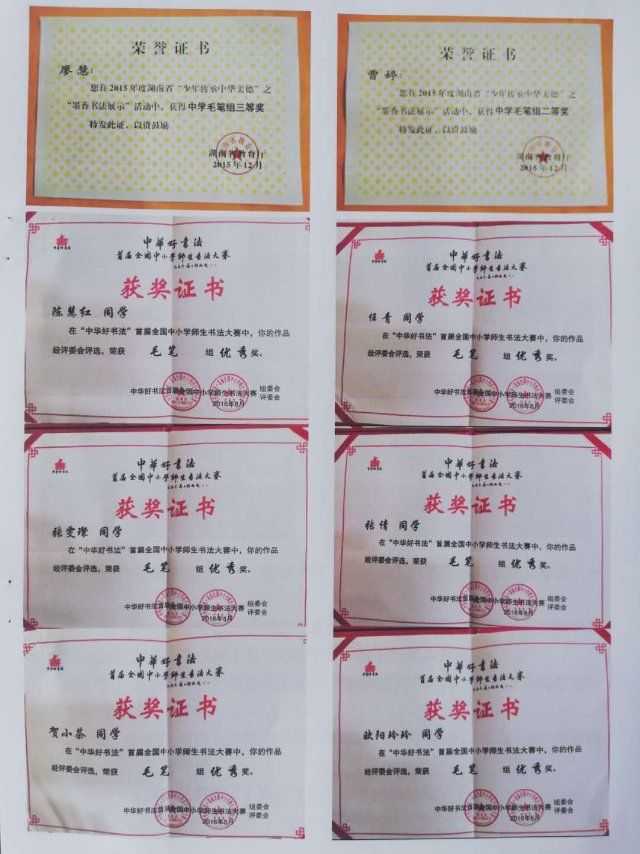 荣誉证书
廖慧：
您在2015年度湖南省“少年传承中华美德”之
“墨香书法展示”活动中，获得中学毛笔组三等奖
特发此证，以资鼓励
湖南省教育厅
2015年12月
荣誉证书
曹婷：
您在2015年度湖南省“少年传承中华美德”之
“墨香书法展示”活动中，获得中学毛笔组二等奖
特发此证，以资鼓励
湖南省教育厅
2015年12月
中华好书法
首届全国中小学师生书法大赛
获奖证书
陈慧红 同学
在“中华好书法”首届全国中小学师生书法大赛中，你的作品
经评委会评选，荣获 毛笔 组 优秀 奖。
中华好书法首届全国中小学师生书法大赛 组委会
评委会
2016年8月
中华好书法
首届全国中小学师生书法大赛
获奖证书
任青 同学
在“中华好书法”首届全国中小学师生书法大赛中，你的作品
经评委会评选，荣获 毛笔 组 优秀 奖。
中华好书法首届全国中小学师生书法大赛 组委会
评委会
2016年8月
中华好书法
首届全国中小学师生书法大赛
获奖证书
张雯璨 同学
在“中华好书法”首届全国中小学师生书法大赛中，你的作品
经评委会评选，荣获 毛笔 组 优秀 奖。
中华好书法首届全国中小学师生书法大赛 组委会
评委会
2016年8月
中华好书法
首届全国中小学师生书法大赛
获奖证书
张倩 同学
在“中华好书法”首届全国中小学师生书法大赛中，你的作品
经评委会评选，荣获 毛笔 组 优秀 奖。
中华好书法首届全国中小学师生书法大赛 组委会
评委会
2016年8月
中华好书法
首届全国中小学师生书法大赛
获奖证书
贺小茶 同学
在“中华好书法”首届全国中小学师生书法大赛中，你的作品
经评委会评选，荣获 毛笔 组 优秀 奖。
中华好书法首届全国中小学师生书法大赛 组委会
评委会
2016年8月
中华好书法
首届全国中小学师生书法大赛
获奖证书
欧阳玲玲 同学
在“中华好书法”首届全国中小学师生书法大赛中，你的作品
经评委会评选，荣获 毛笔 组 优秀 奖。
中华好书法首届全国中小学师生书法大赛 组委会
评委会
2016年8月